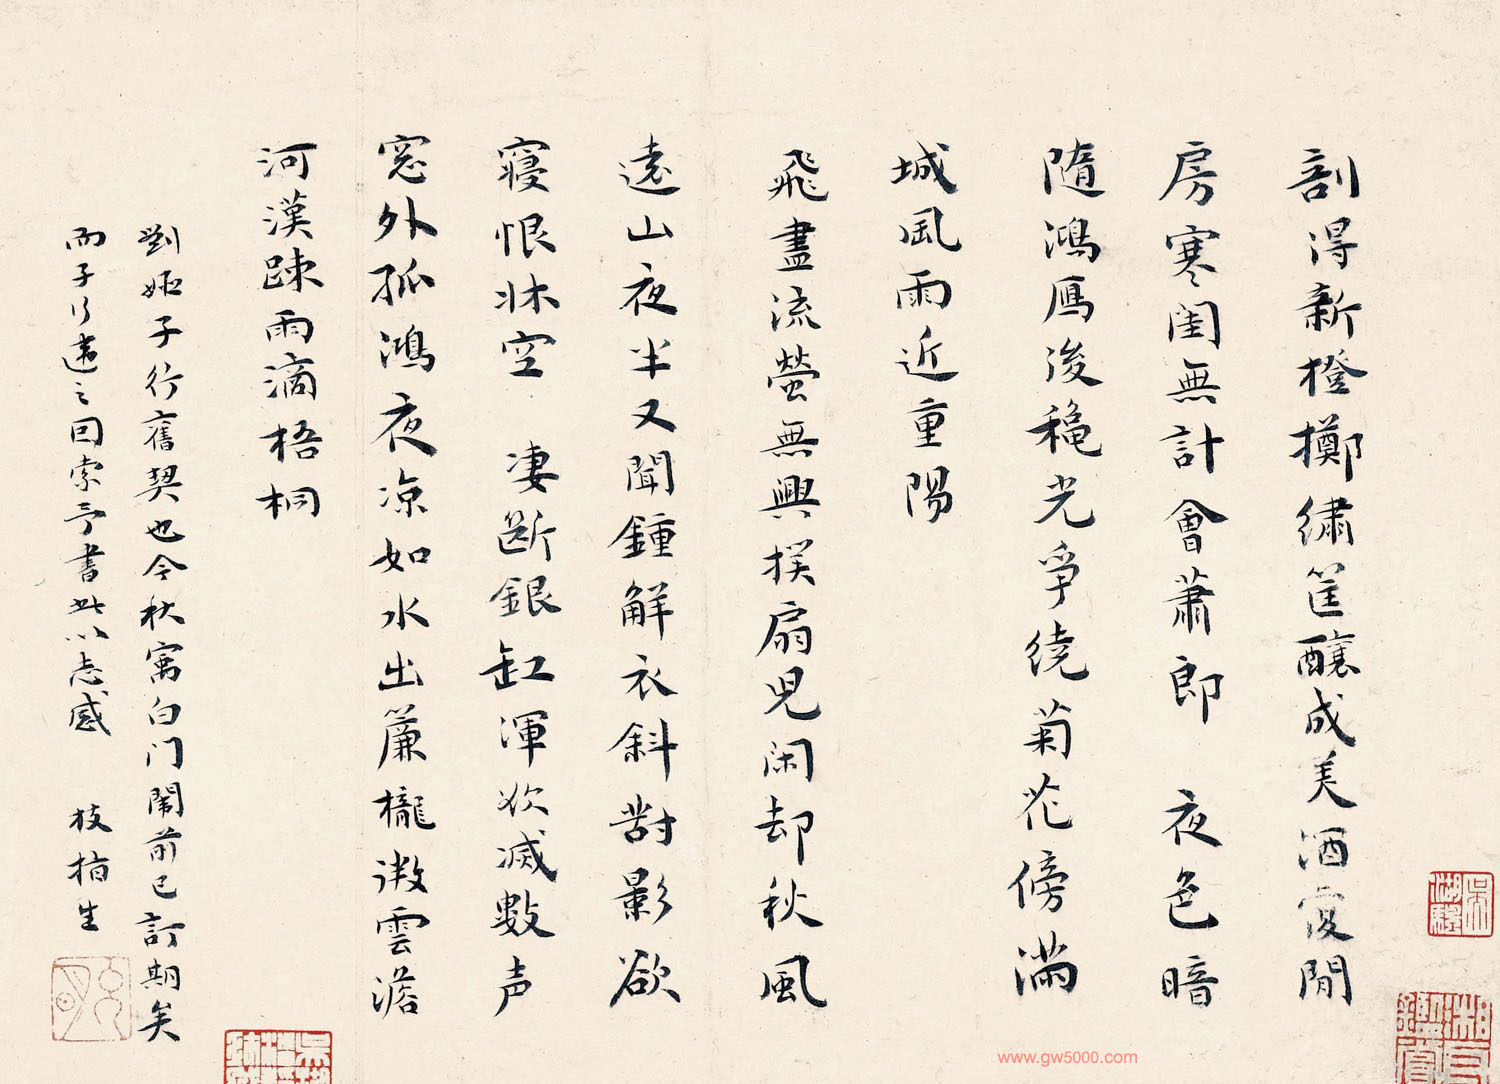 剖得新橙擲繡筐釀成美酒復閒
房寒閨無計會蕭郎 夜色暗
隨鴻鴈後穐光爭繞菊花傍滿
城風雨近重陽
飛盡流螢無興撲扇兒闲却秋風
遠山夜半又聞鍾解衣斜對影欲
寢恨牀空 凄斷銀缸渾欲滅數声
窓外孤鴻夜凉如水出簾櫳微雲澹
河漢疎雨滴梧桐
劉姬子行舊契也今秋寓白门鬧前已訂期矣
而子行遠之回索予書此以志感 枝指生
www.gw5000.com